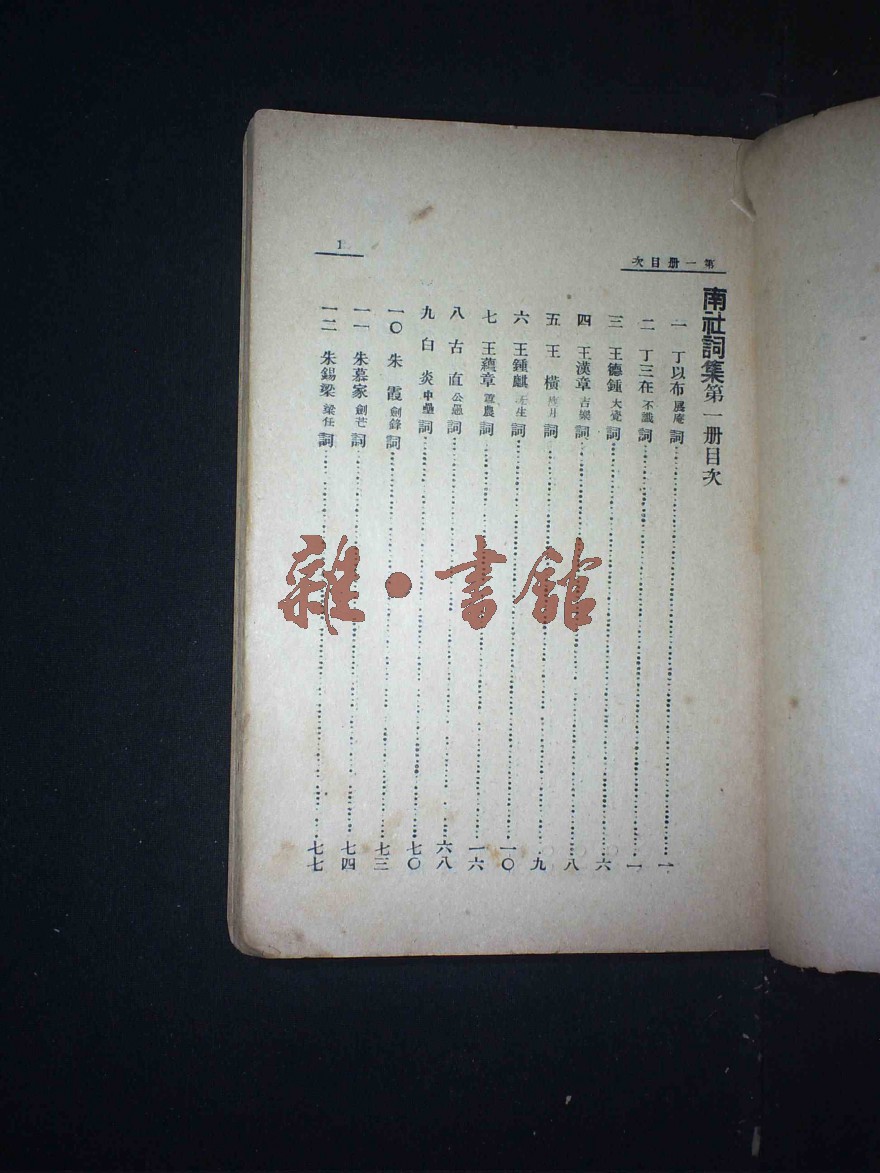 第一册目次
1
南社詞集第一册目次
一 丁以布 展庵 詞 一
二 丁三在 不識 詞 一
三 王德鍾 大覺 詞 六
四 王漢章 吉樂 詞 八
五 王橫 詞 九
六 王鍾麒 无生 詞 一〇
七 王蘊章 蓴農 詞 一六
八 古直 公愚 詞 六八
九 白炎 中壘 詞 七〇
一〇 朱霞 劍鋒 詞 七三
一一 朱慕家 劍芒 詞 七四
一二 朱錫梁 梁任 詞 七七
雜·書館